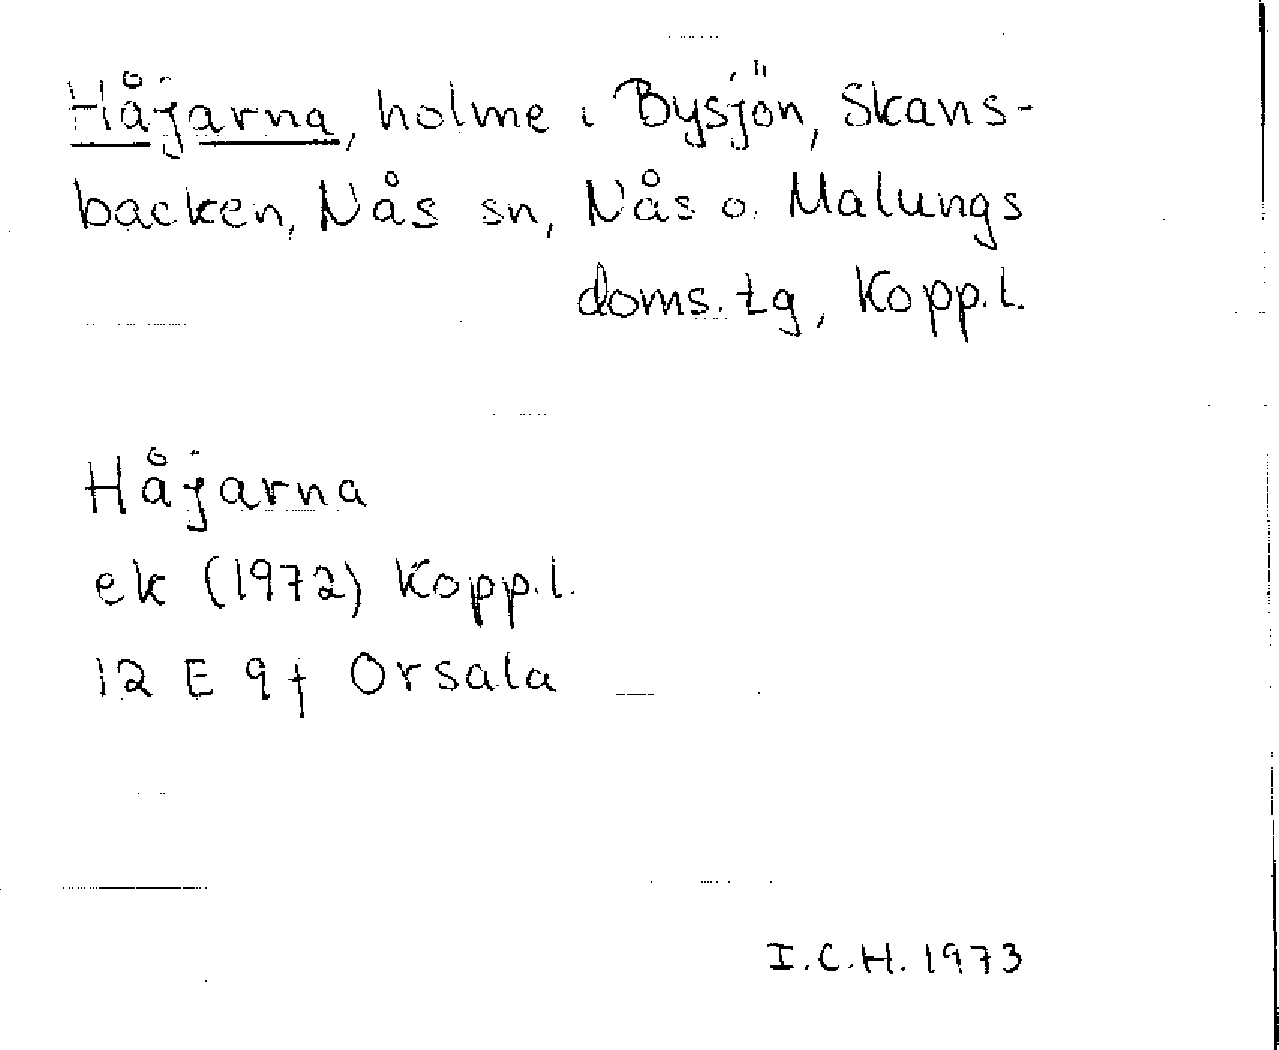 Håjarna, holme i Bysjön, Skans-
backen, Nås sn, Nås o. Malungs
doms. tg, Kopp.l.
Håjarna
ek (1972) Kopp.l.
12 E 9f Orsala
I.C.H. 1973